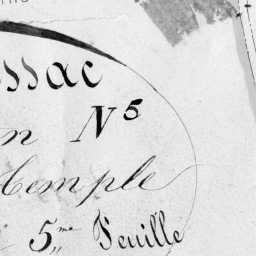 ssac
n N5
Temple
5me Feuille